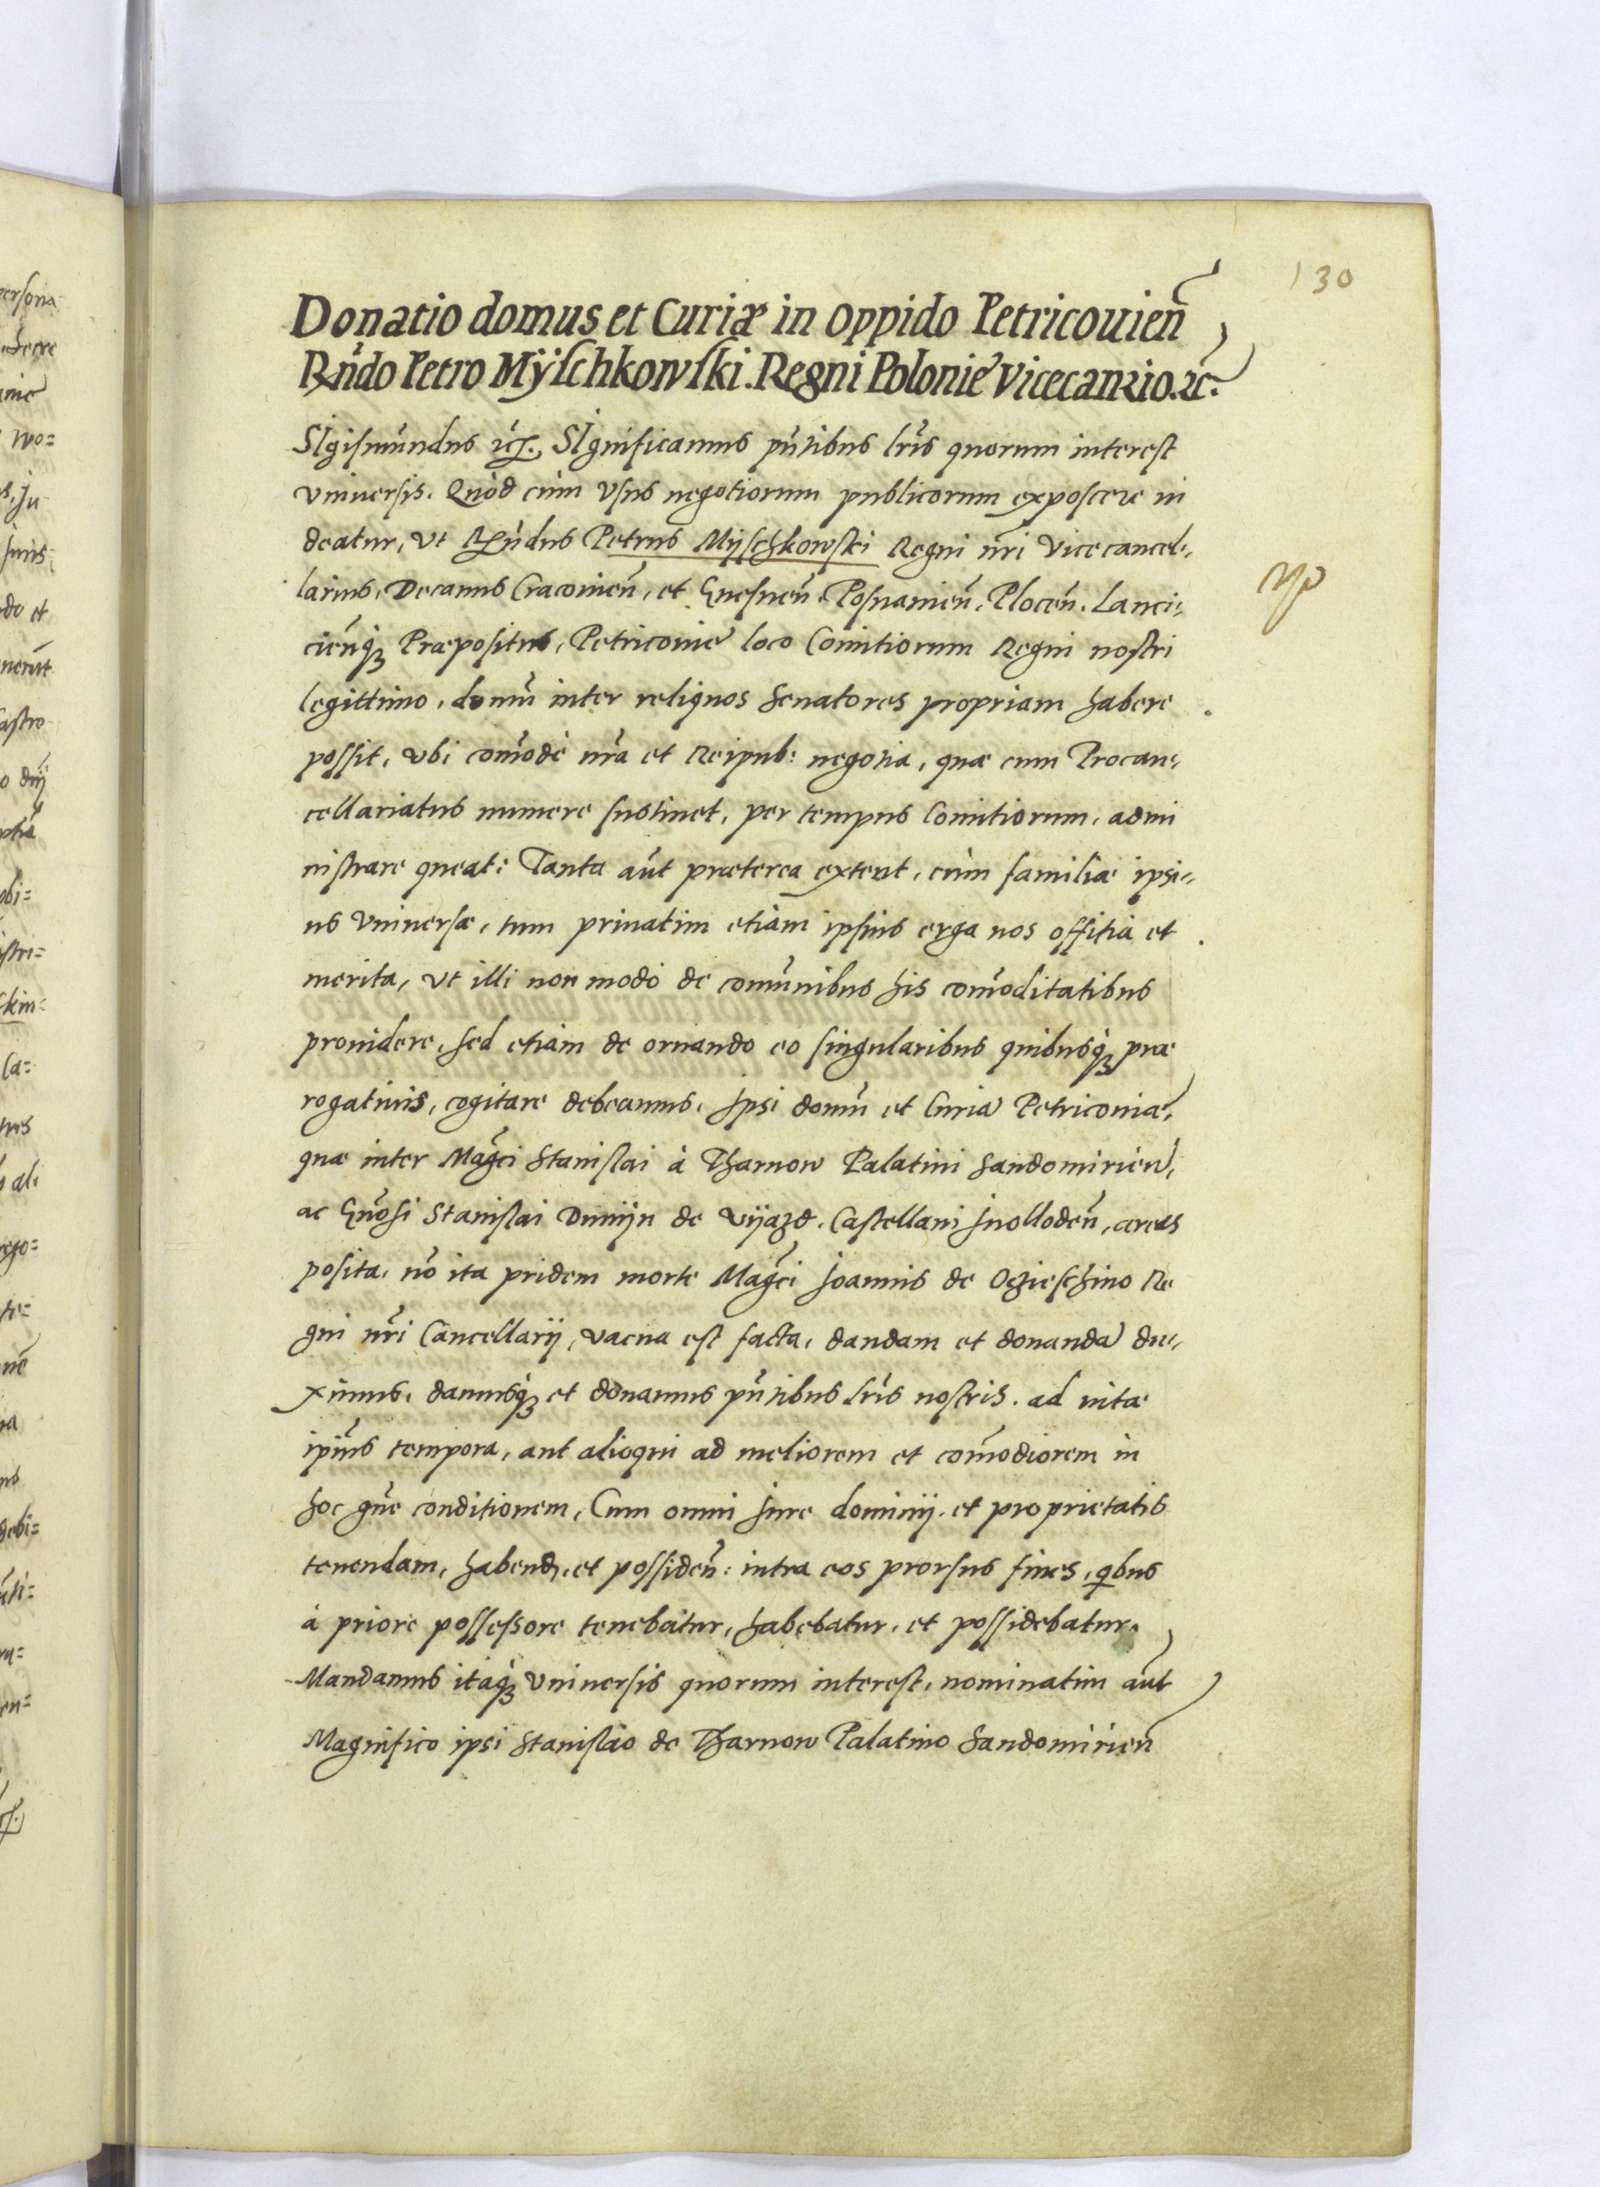 130
Donatio domus et Curiæ in oppido Petricouieñ
Rñdo Petro Mÿschkowski. Regni Polonie Vicecancrio. ꝛc.
SIgismundus ꝛc. SIgnificamus pñtibus lr̃is quorum interest
vniuersis. Quòd cùm vsus negotiorum publicorum exposcere ui
deatur, vt Rñdus Petrus Mijschkowski Regni nr̃i Vicecancel-
larius, Decanus Cracouieñ, et Gnesneñ. Posnanieñ. Ploceñ. Lanci-
cieñqꝫ Præpositus, Petricouie loco Comitiorum Regni nostri
legittimo, domũ inter reliquos Senatores propriam habere
possit, vbi com̃odè nr̃a et Reipub: negotia, quæ cum Procan-
cellariatus munere sustinet, per tempus Comitiorum, admi
nistrare queat: Tanta aũt præterea extent, cùm familiæ ipsi-
us vniuersæ, tum priuatim etiam ipsius erga nos offitia et
merita, vt illi non modò de com̃unibus his com̃oditatibus
prouidere, sed etiam de ornando eo singularibus quibusqꝫ præ
rogatiuis, cogitare debeamus. Ipsi domũ et Curiã Petricouiæ,
quæ inter Mag̃ci Stanislai à Tharnow Palatini Sandomirieñ,
ac Gñosi Stanislai Dunijn de Vijazd. Castellani Jnollodeñ, areas
posita, nõ ita pridem morte Mag̃ci Joannis de Oczieschino Re
gni nr̃i Cancellarij, vacua est facta, dandam et donandã du-
ximus, damusqꝫ et donamus pñtibus lr̃is nostris. ad uitæ
ipĩus tempora, aut alioqui ad meliorem et com̃odiorem in
hoc gñe conditionem, Cum omni Jure dominij et proprietatis
tenendam, habend, et possideñ: intra eos prorsus fines, qibus
à priore possessore tenebatur, habebatur, et possidebatur.
Mandamus itaqꝫ vniuersis quorum interest, nominatim aũt
Magnifico ipsi Stanislao de Tharnow Palatino Sandomirieñ